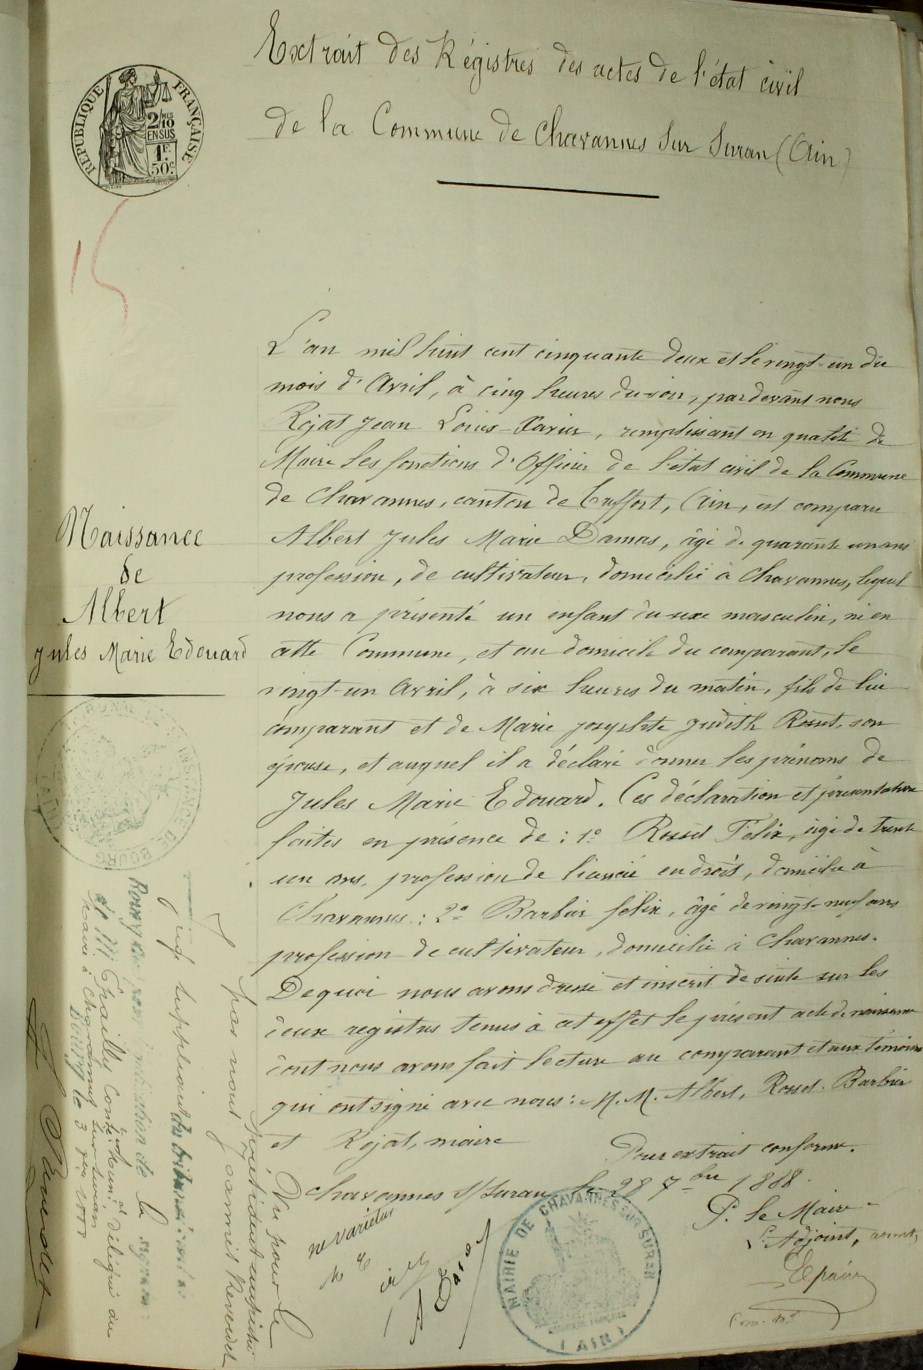 Extrait des Régistres des actes de l'état civil
de la Commune de Chavannes Sur Suran (Ain)
RÉPUBLIQUE FRANÇAISE
2/10
EN SUS
1F
50c
L'an mil huit cent cinquante deux et le vingt-un du
mois d'Avril, à cinq heures du soir, par devant nous
Rojat Jean Louis-Xavier, remplissant en qualité de
Maire les fonctions d'Officier de l'état civil de la Commune
de Chavannes, canton de Treffort, Ain, est comparu
Albert Jules Marie Damas, âgé de quarante un ans
profession, de cultivateur, domicilié à Chavannes, lequel
nous a présenté un enfant du sexe masculin, né en
cette Commune, et au domicile du comparant, le
vingt-un Avril, à six heures du matin, fils de lui
comparant et de Marie josephte Judith Rosset, son
épouse, et auquel il a déclaré donner les prénoms de
Jules Marie Edouard. Ces déclaration et présentation
faites en présence de : 1° Rosset Félix, âgé de trente
un ans, profession de licencié en droit, domicilié à
Chavannes : 2° Barbier félix, âgé de vingt-neuf ans
profession de cultivateur, domicilié à Chavannes.
De quoi nous avons dressé et inscrit de suite sur les
deux registres tenus à cet effet le présent acte de naissance
dont nous avons fait lecture au comparant et aux témoins
qui ont signé avec nous : M.M. Albert, Rosset. Barbier
et Rojat, maire
Pour extrait conforme.
Chavannes s/Suran le 28 7bre 1888
P. le Maire
L'Adjoint,
Naissance
de
Albert
Jules Marie Edouard
MAIRIE DE CHAVANNES SUR SURAN
(AIN)
ne varietur
Vu pour le